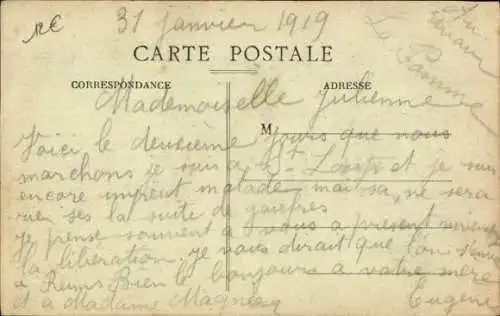 31 janvier 1919
CARTE POSTALE
CORRESPONDANCE
ADRESSE
Mademoiselle Julienne
M
Voici le deuxième jours que nous
marchons je suis a St Loup et je suis
encore un peut malade mai sa ne sera
rien ses la suite de
je pense souvent a vous a present vivient
la libération. je vous dirait que l'on
a Reims Bien le bonjours a votre mère
et a Madame
Eugène